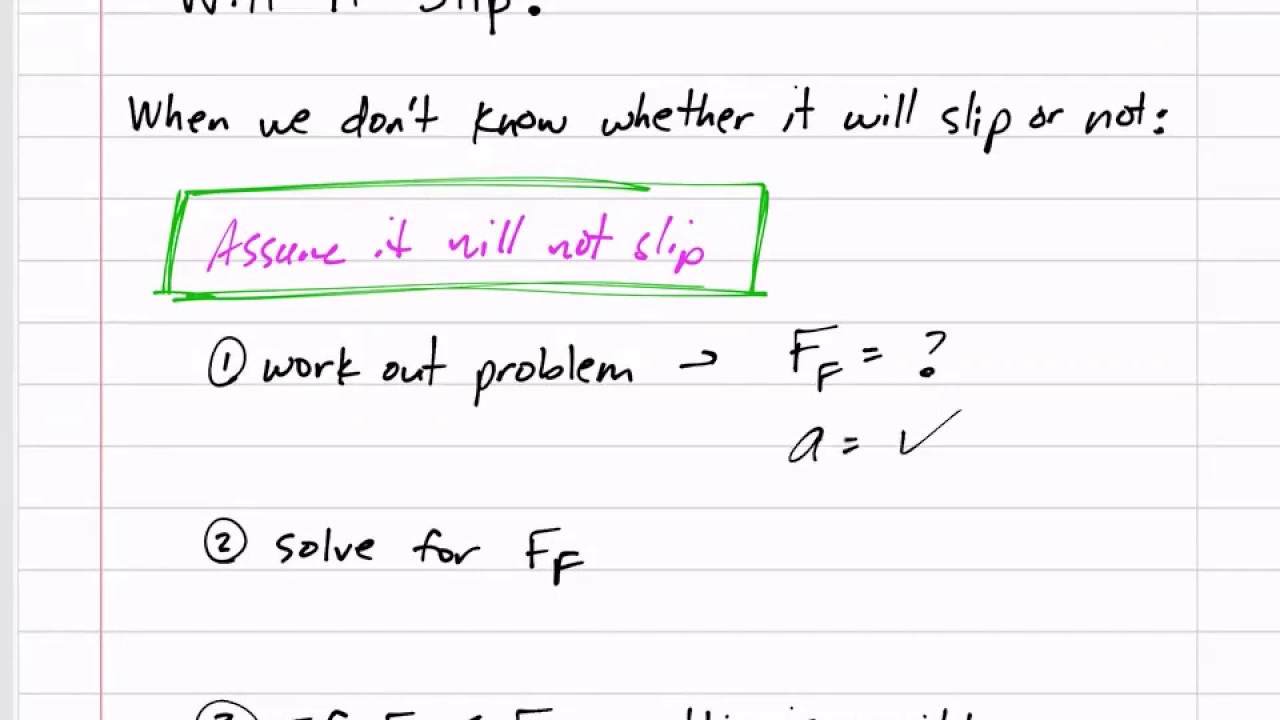 Will it slip?
When we don't know whether it will slip or not:
Assume it will not slip
① work out problem → F_F = ?
a = ✓
② solve for F_F
③ If F_F